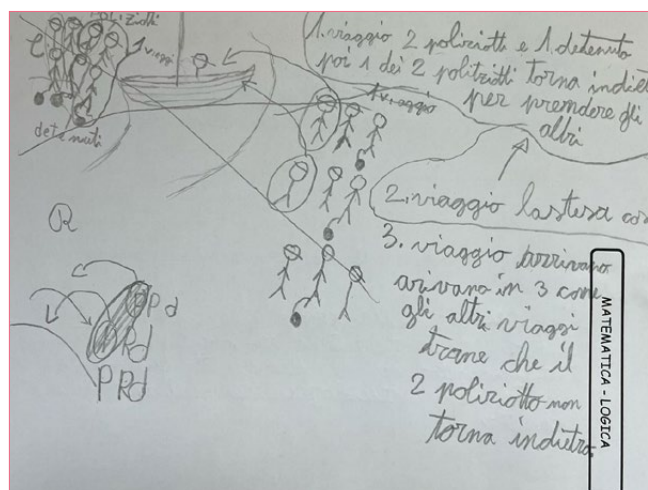 Poliziotti
1 viaggi
detenuti
1 viaggio
1. viaggio 2 poliziotti e 1 detenuto
poi 1 dei 2 politziotti torna indiet
per premdere gli
altri
2. viaggio lastesa cos
3. viaggio arrivano
arivano in 3 come
gli altri viaggi
trane che il
2 poliziotto non
torna indietro.
R
PPd
PPd
MATEMATICA - LOGICA